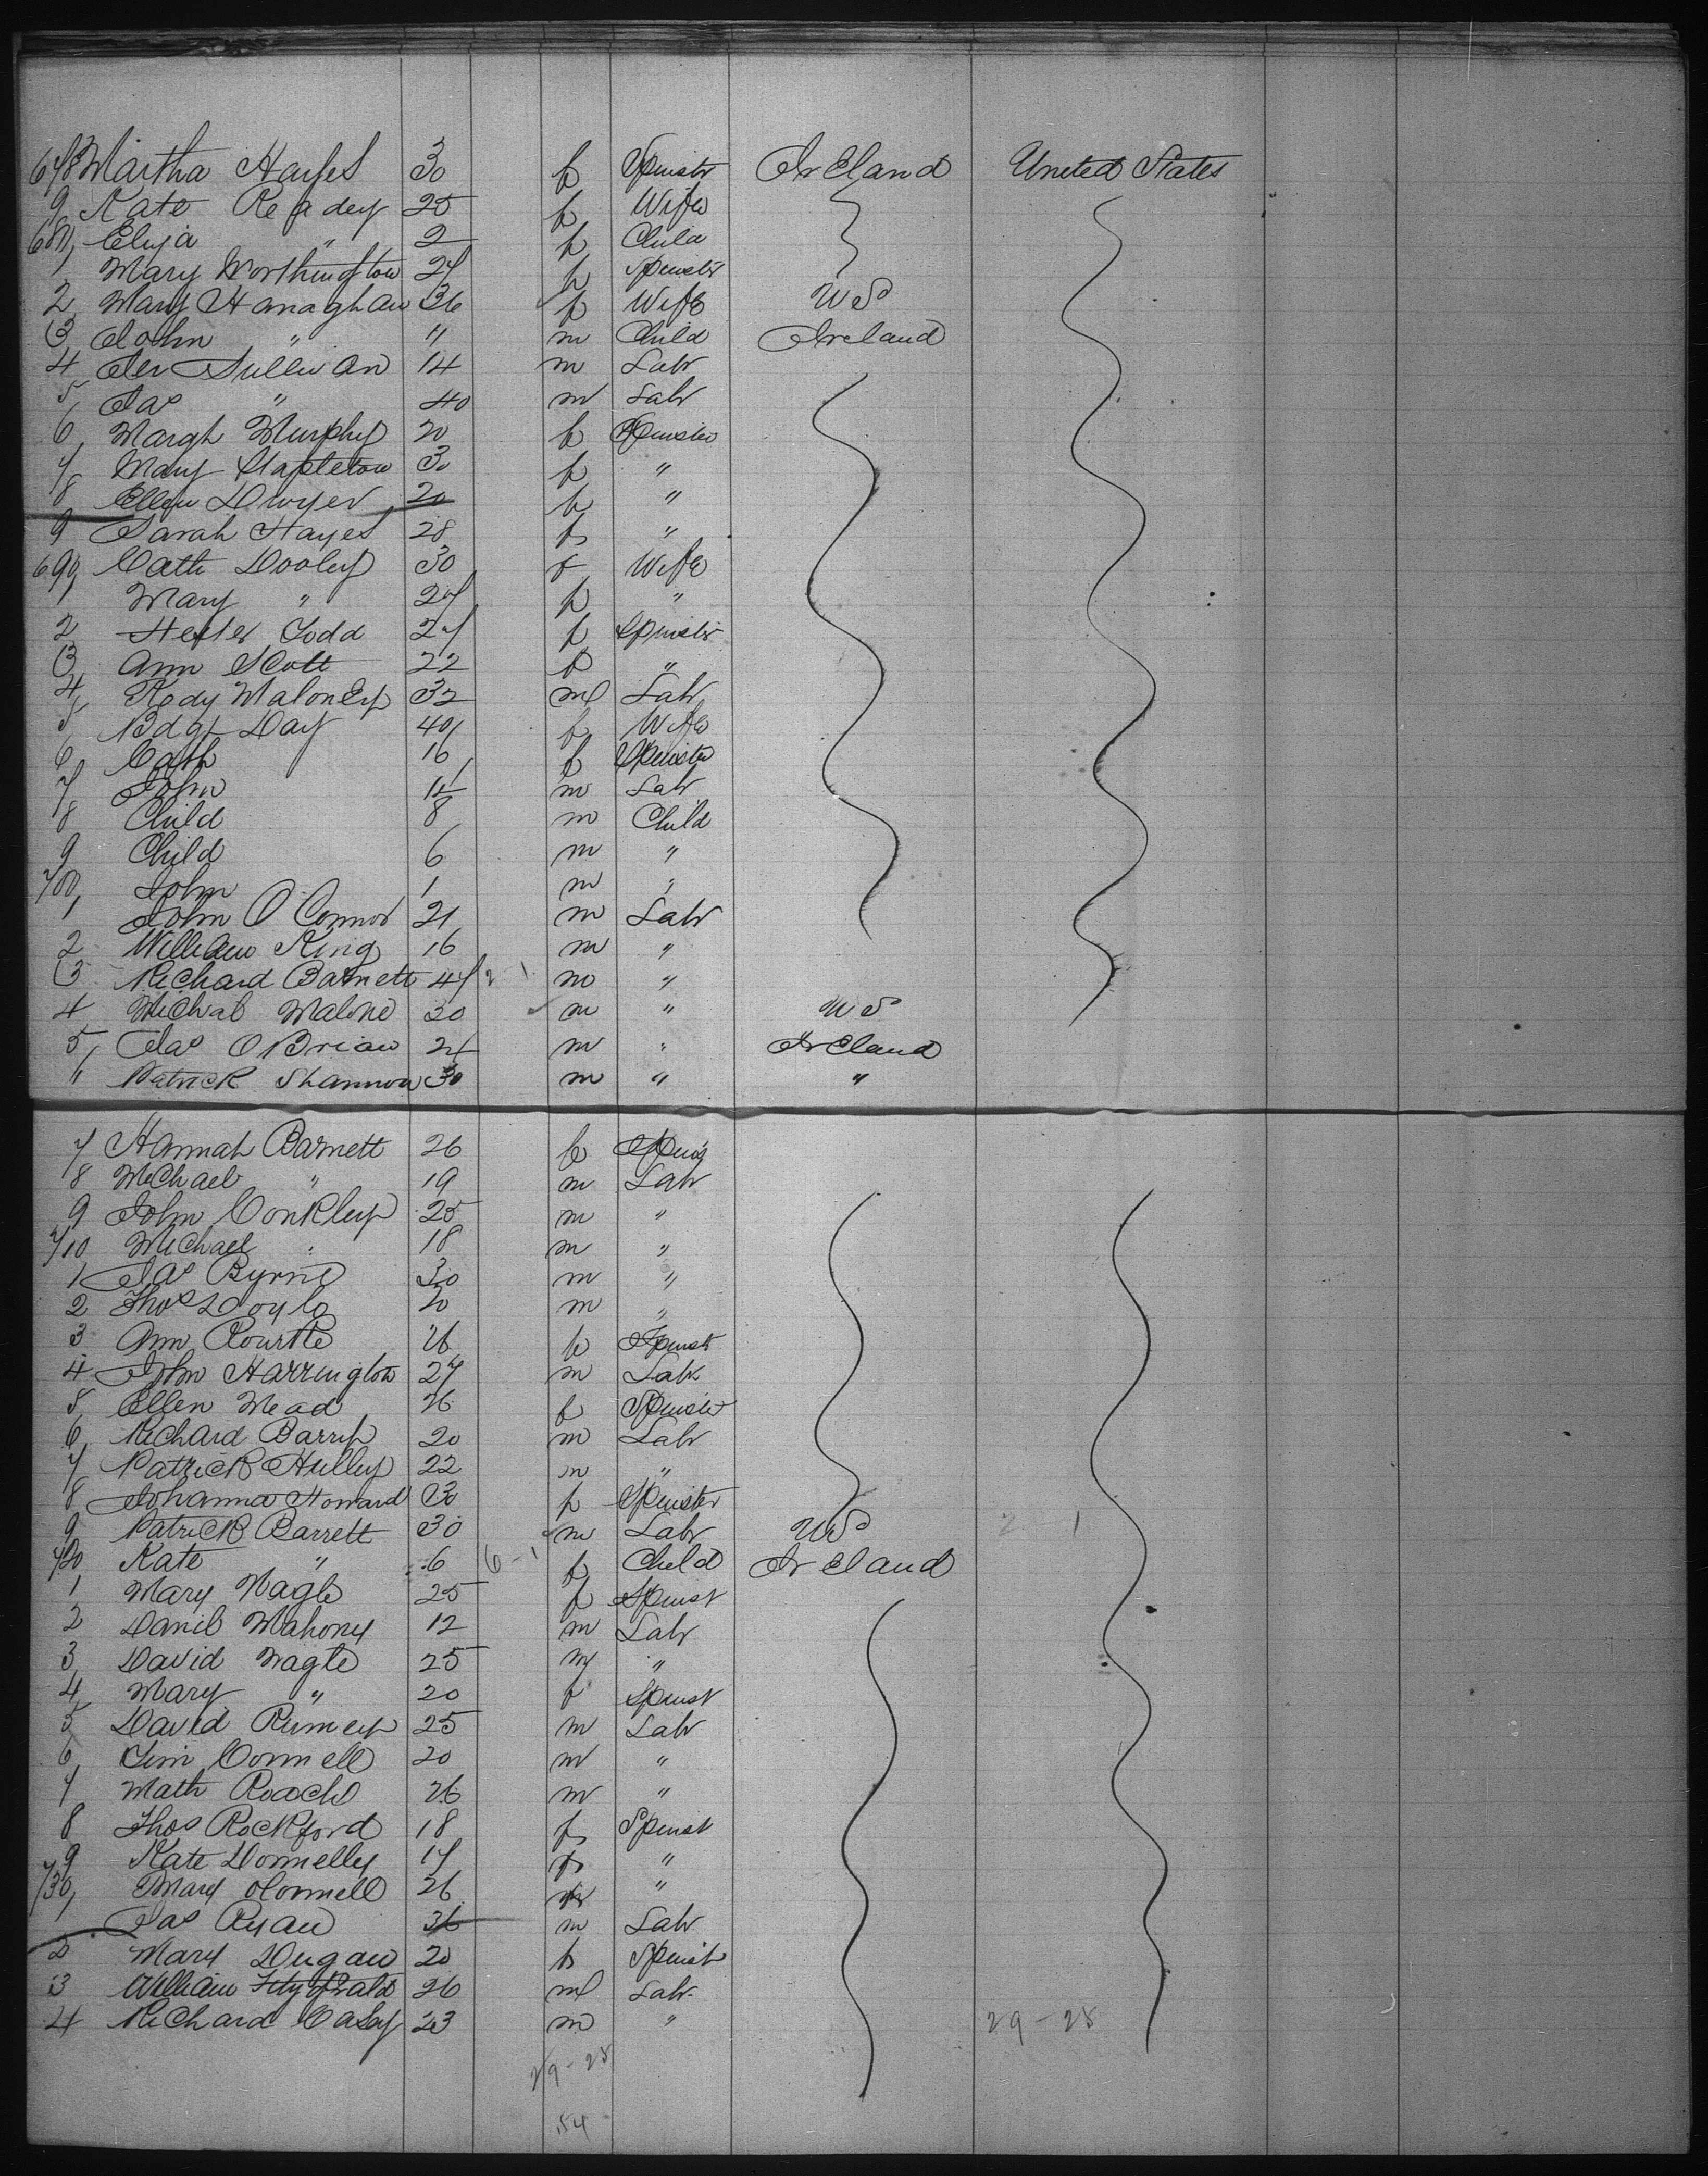 678 Martha Hayes 30 f Spinstr Ireland United States
9 Kate Readey 25 f Wife
680, Eliza " 2 f Child
1, Mary Worthington 27 f Spinstr
2, Mary Hanaghan 36 f Wife US
3, John " " m Child Ireland
4 Jer Sullivan 14 m Labr
5, Jas " 40 m Labr
6, Margh Murphy 20 f Spinster
7 Mary Stapleton 30 f "
8 Ellen Dwyer 20 f "
9 Sarah Hayes 28 f "
690, Cath Dooley 30 f Wife
1, Mary " 27 f "
2 Hester Todd 27 f Spinstr
3, Ann Scott 22 f "
4, Rody Maloney 32 m Labr
5 Bdgt Day 40 f Wife
6, Cath 16 f Spinster
7 John 14 m Labr
8 Child 8 m Child
9 Child 6 m "
700, John 1 m "
1 John O Connor 21 m Labr
2 William King 16 m "
3 Richard Barnett 47 2-1 m "
4 Michael Malone 30 m " US
5, Jas O Brian 24 m " Ireland
" Patrick Shannon 30 m " "
7 Hannah Barnett 26 f Spins
8 Michael " 19 m Labr
9 John Conkley 25 m "
710 Michael " 18 m "
1 Jas Byrne 30 m "
2 Thos Doyle 20 m "
3 Ann Rourke 26 f Spinst
4 John Harrington 27 m Labr
5 Ellen Mead 26 f Spinster
6, Richard Barry 20 m Labr
7 Patrick Hulley 22 m "
8 Johanna Howard 30 f Spinster
9 Patrick Barrett 30 m Labr US 2-1
720 Kate " 6 6-1 f Child Ireland
1 Mary Nagle 25 f Spinst
2 Daniel Mahony 12 m Labr
3, David Nagle 25 m "
4, Mary " 20 f Spinst
5 David Rumey 25 m Labr
6, Tim Connell 20 m "
7 Math Roach 26 m "
8 Thos Rockford 18 f Spinst
9 Kate Donnelly 17 f "
730, Mary OConnell 26 f "
1 Jas Ryan 36 m Labr
2 Mary Dugan 20 f Spinst
3 William Fitzgerald 26 m Labr
4 Richard Casey 23 m " 29-25
29-25
54